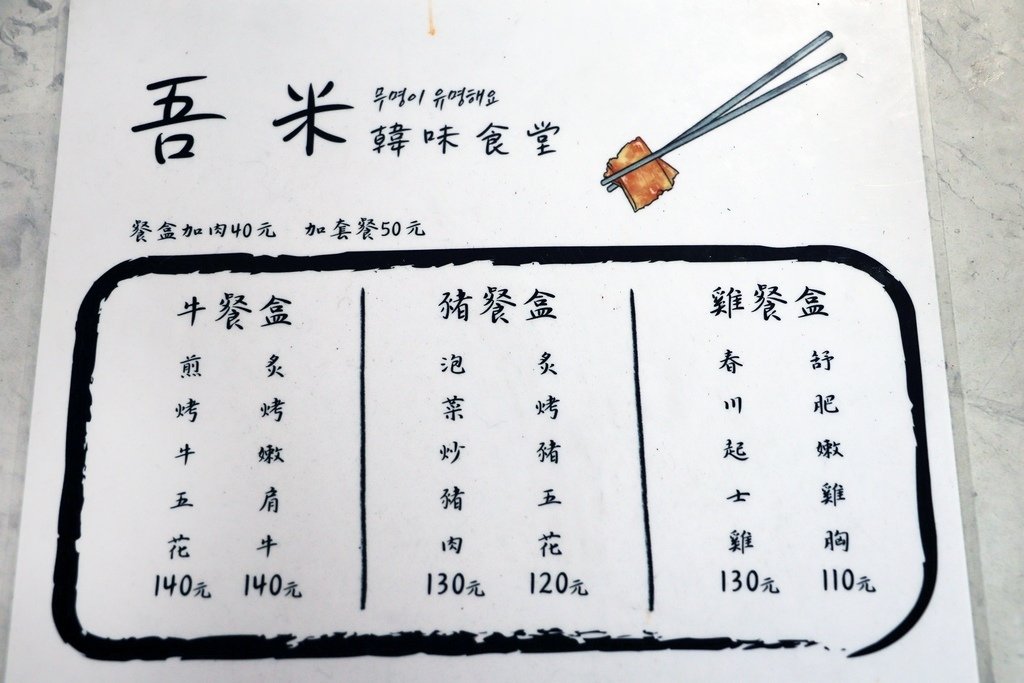 吾米
무명이 유명해요
韓味食堂
餐盒加肉40元 加套餐50元
牛餐盒
炙烤嫩肩牛
140元
煎烤牛五花
140元
豬餐盒
炙烤豬五花
120元
泡菜炒豬肉
130元
雞餐盒
舒肥嫩雞胸
110元
春川起士雞
130元